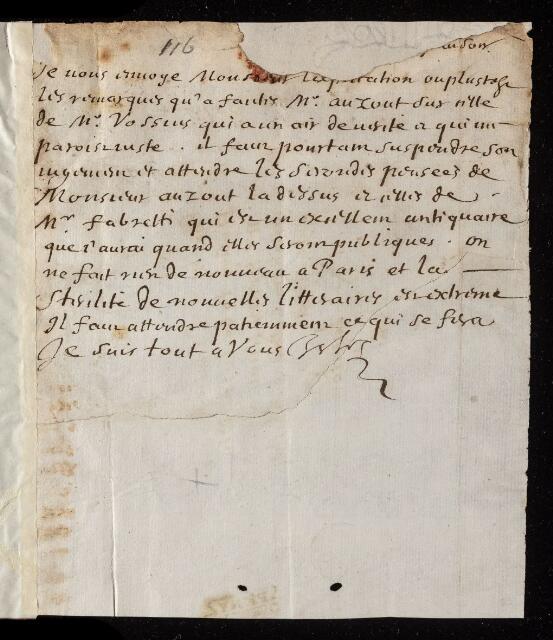 116
Je vous envoye Monsieur l'aplication ou plustost
les remarques qu'a faites Mr. auzout sur celle
de Mr. Vossius qui a un air de verité et qui me
paroist juste. il faut pourtant suspendre son
jugement et attendre les secondes pensées de
Monsieur auzout la dessus et celles de
Mr. fabretti qui est un excellent antiquaire
que j'aurai quand elles seront publiques. on
ne fait rien de nouveau a Paris et la
sterilité de nouvelles litteraires est extreme
Il faut attendre patiemment ce qui se fera
Je suis tout a Vous